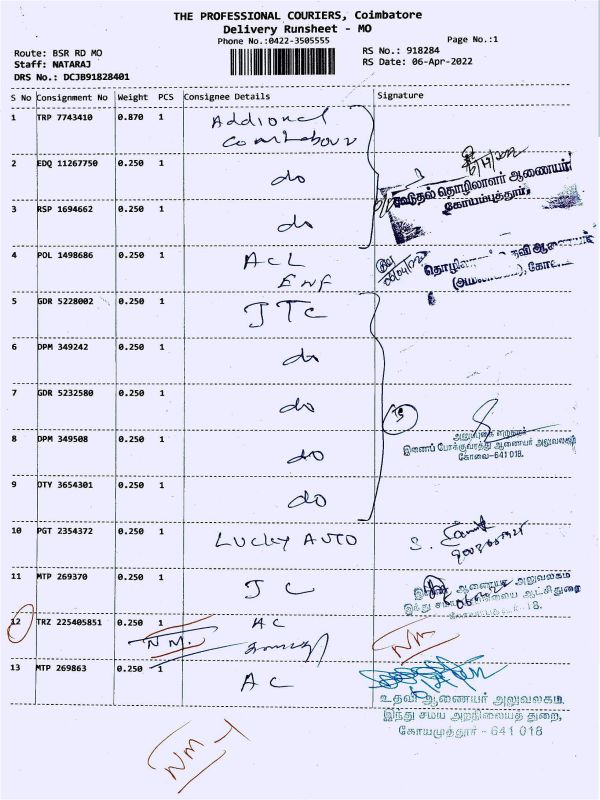 THE PROFESSIONAL COURIERS, Coimbatore
Delivery Runsheet - MO
Phone No.:0422-3505555
Page No.:1
Route: BSR RD MO
RS No.: 918284
Staff: NATARAJ
RS Date: 06-Apr-2022
DRS No.: DCJB91828401
S No Consignment No Weight PCS Consignee Details Signature
1 TRP 7743410 0.870 1 Addional
2 EDQ 11267750 0.250 1 do
தொழிலாளர் ஆணையர்
கோயம்புத்தூர்
3 RSP 1694662 0.250 1 do
4 POL 1498686 0.250 1 ACL
ENF
5 GDR 5228002 0.250 1 JTC
6 DPM 349242 0.250 1 do
7 GDR 5232580 0.250 1 do
8 DPM 349508 0.250 1 do
இணைப் போக்குவரத்து ஆணையர் அலுவலகம்
கோவை-641 018.
9 OTY 3654301 0.250 1 do
10 PGT 2354372 0.250 1 LUCKY AUTO S.
11 MTP 269370 0.250 1 JC
ஆணையர் அலுவலகம்
12 TRZ 225405851 0.250 1 AC
NM. NM
13 MTP 269863 0.250 1 AC
உதவி ஆணையர் அலுவலகம்.
இந்து சமய அறநிலையத் துறை,
கோயமுத்தூர் - 641 018
NM